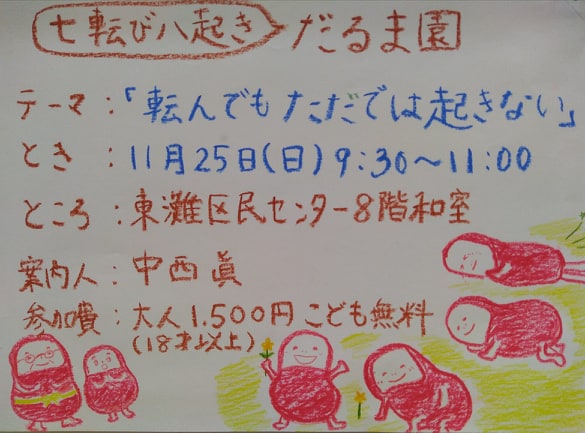 七転び八起き だるま園
テーマ：「転んでもただでは起きない」
とき：11月25日(日)9:30～11:00
ところ：東灘区民センター8階和室
案内人：中西眞
参加費：大人1.500円こども無料
(18才以上)